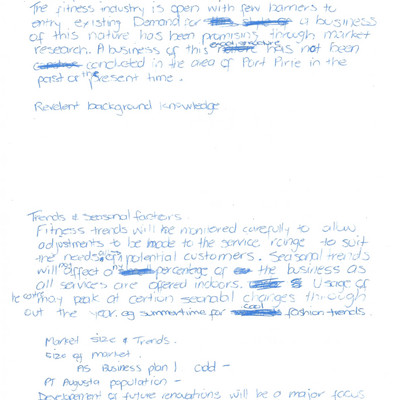 The fitness industry is open with few barriers to
entry existing Demand for a business
of this nature has been promising through market
research. A business of this exact structure has not been
conducted in the area of Port Pirie in the
past or the present time.
Revelent background knowledge
Trends & Seasonal factors
Fitness trends will be monitored carefully to allow
adjustments to be made to the service range to suit
the needs of potential customers. Seasonal trends
will not affect percentage of the business as
all services are offered indoors. Usage of
may peak at certian seanabl changes through
out the year. eg summertime for cool fashion trends.
Market size & Trends.
Size of market.
As Business plan 1 add -
Pt Augusta population -
Development of future renovations will be a major focus